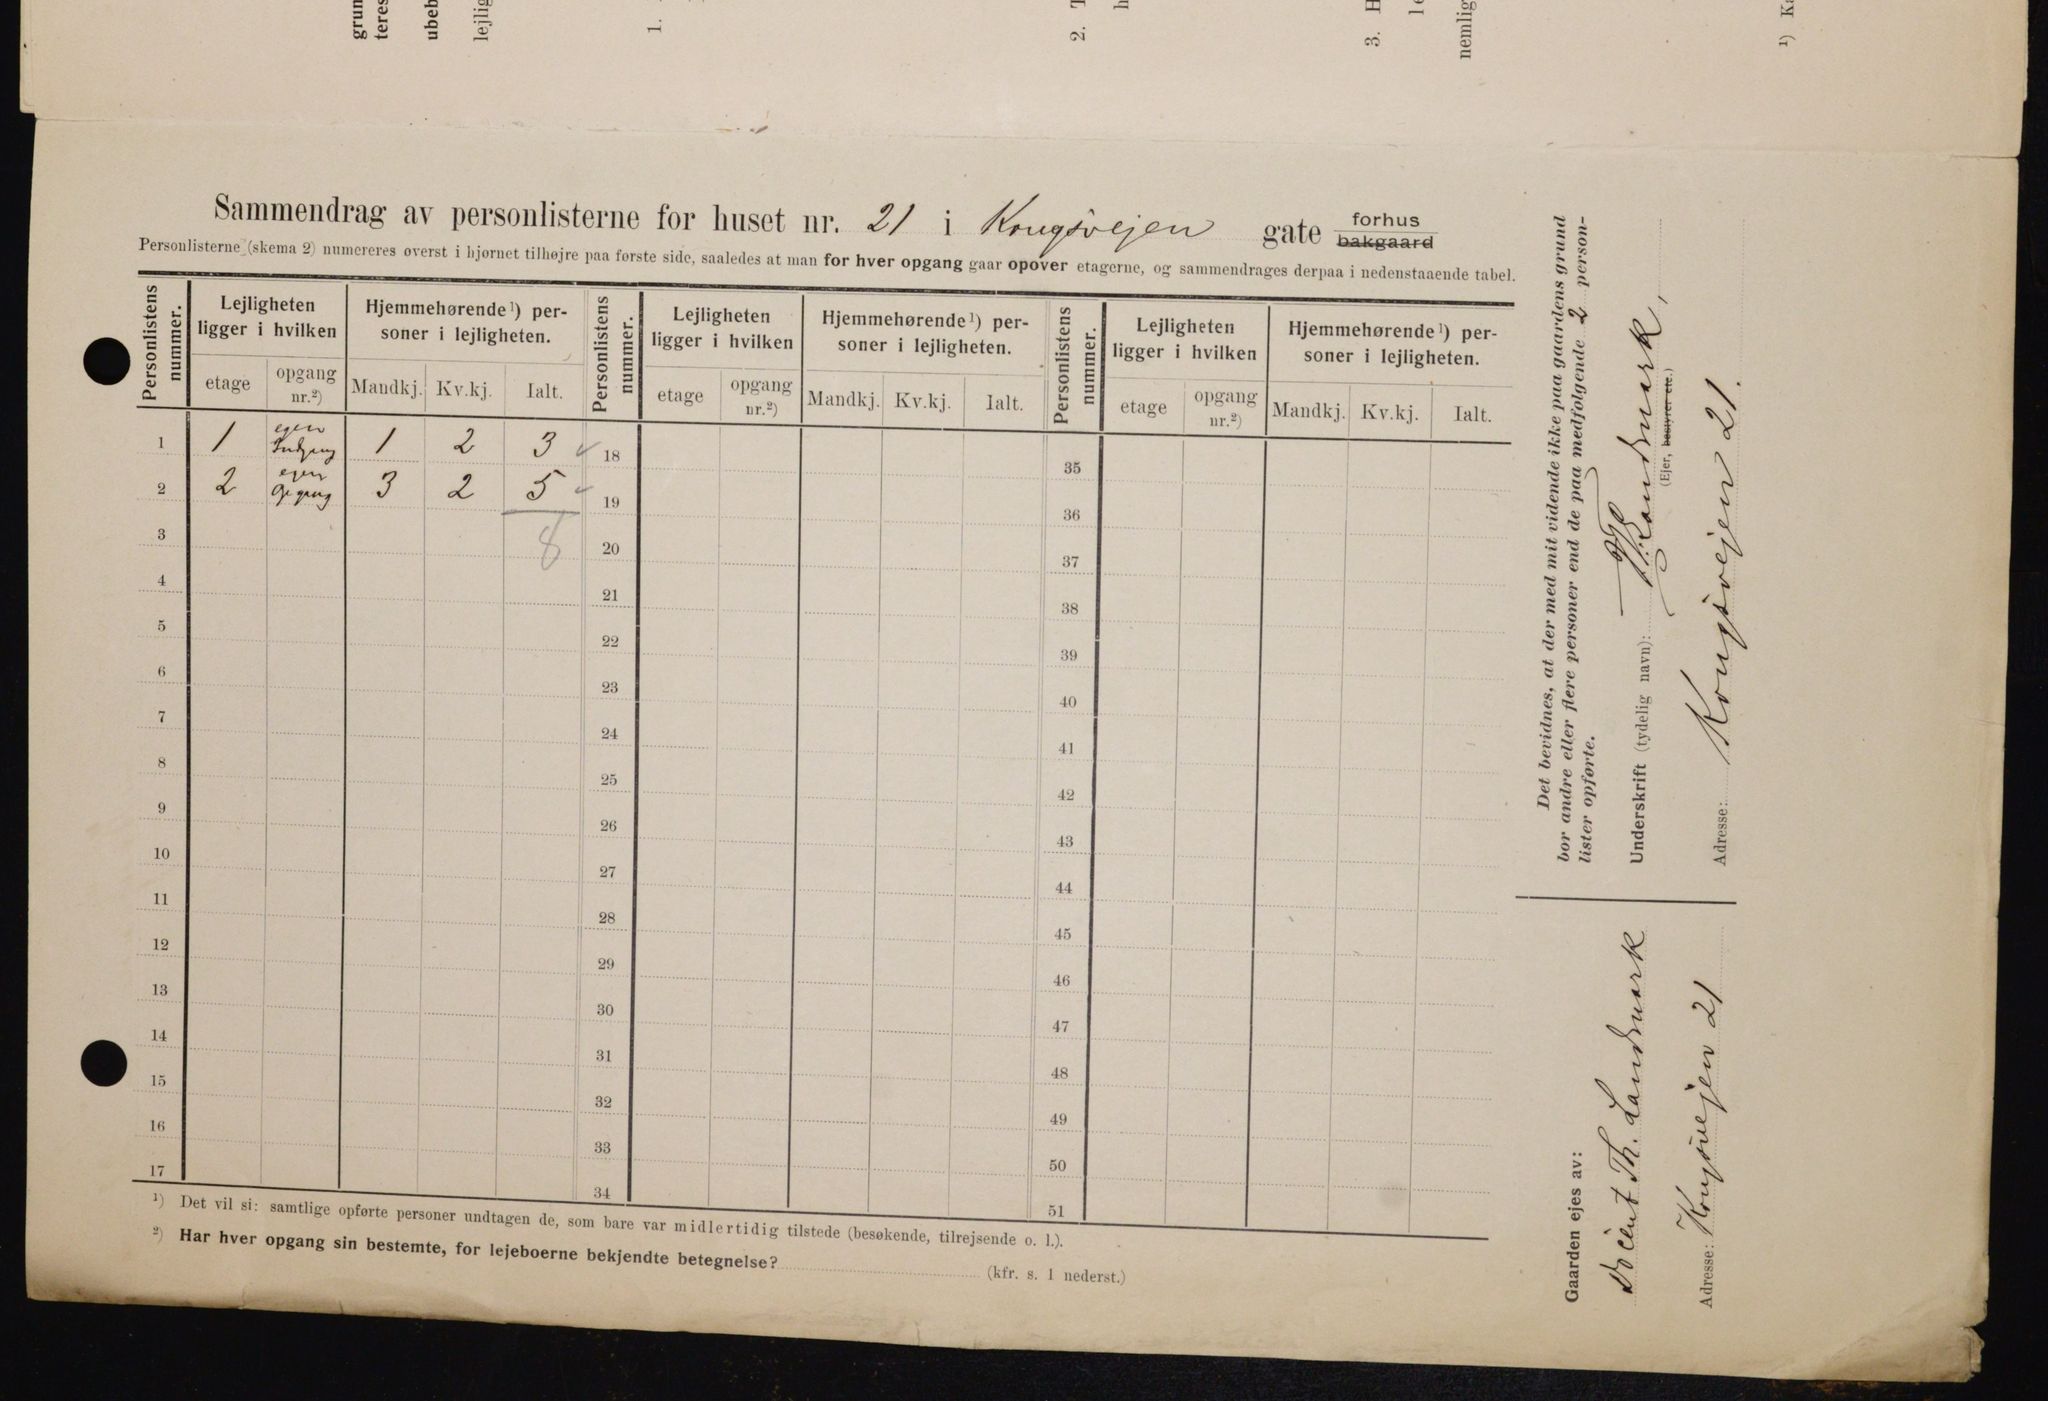 grun
teres
ubeb
lejlig
1.
2. T
h
3. H
le
nemlig
1) Ka
Sammendrag av personlisterne for huset nr. 21 i Kongsvejen gate forhus
bakgaard
Personlisterne (skema 2) numereres øverst i hjørnet tilhøjre paa første side, saaledes at man for hver opgang gaar opover etagerne, og sammendrages derpaa i nedenstaaende tabel.
Personlistens nummer. Lejligheten ligger i hvilken Hjemmehørende1) personer i lejligheten. Personlistens nummer. Lejligheten ligger i hvilken Hjemmehørende1) personer i lejligheten. Personlistens nummer. Lejligheten ligger i hvilken Hjemmehørende1) personer i lejligheten.
etage opgang nr.2) Mandkj. Kv.kj. Ialt. etage opgang nr.2) Mandkj. Kv.kj. Ialt. etage opgang nr.2) Mandkj. Kv.kj. Ialt.
1 1 egen Indgang 1 2 3 18 35
2 2 egen Opgang 3 2 5 19 36
3 8 20 37
4 21 38
5 22 39
6 23 40
7 24 41
8 25 42
9 26 43
10 27 44
11 28 45
12 29 46
13 30 47
14 31 48
15 32 49
16 33 50
17 34 51
1) Det vil si: samtlige opførte personer undtagen de, som bare var midlertidig tilstede (besøkende, tilrejsende o. l.).
2) Har hver opgang sin bestemte, for lejeboerne bekjendte betegnelse? (kfr. s. 1 nederst.)
Det bevidnes, at der med mit vidende ikke paa gaardens grund
bor andre eller flere personer end de paa medfølgende 2 person-
lister opførte.
Underskrift (tydelig navn): Th. Landmark,
(Ejer, bestyrer etc.)
Adresse: Kongsvejen 21.
Gaarden ejes av:
Docent Th. Landmark
Adresse: Kongsvejen 21